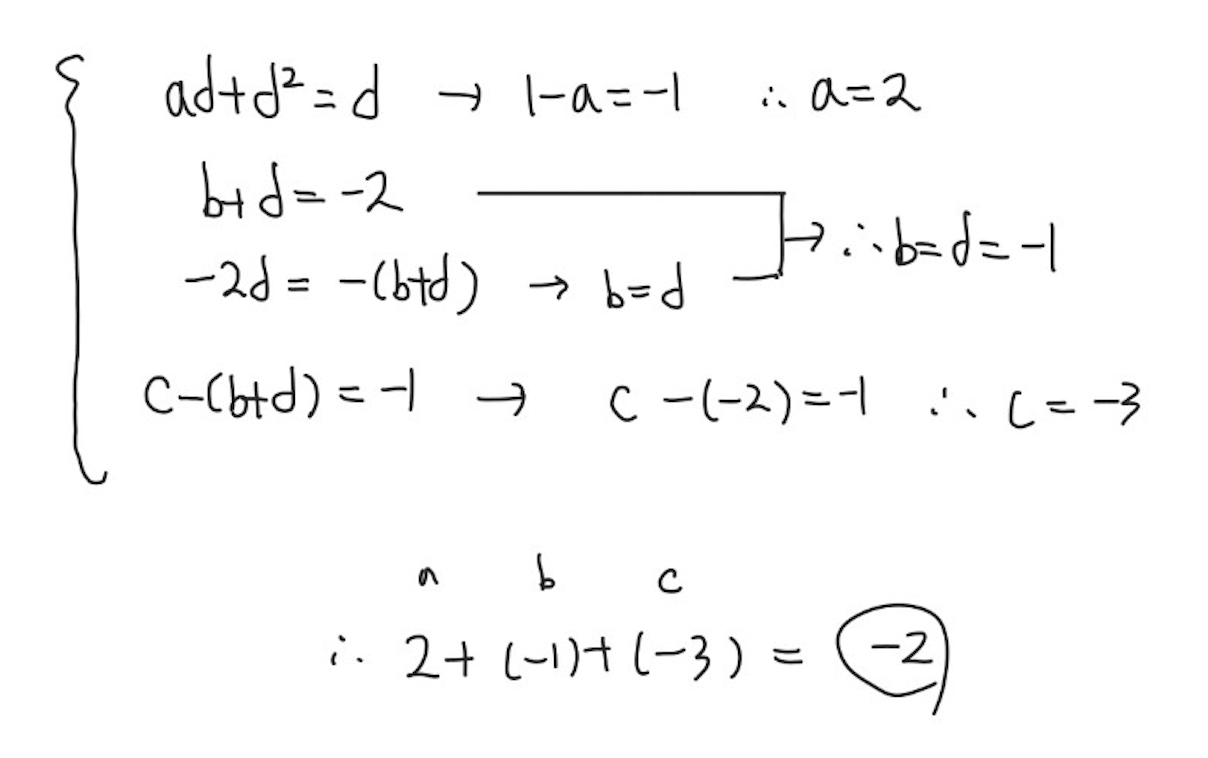 ad+d²=d → 1-a=-1 ∴ a=2
b+d=-2
→ ∴ b=d=-1
-2d=-(b+d) → b=d
c-(b+d)=-1 → c-(-2)=-1 ∴ c=-3
a b c
∴ 2+(-1)+(-3)=-2